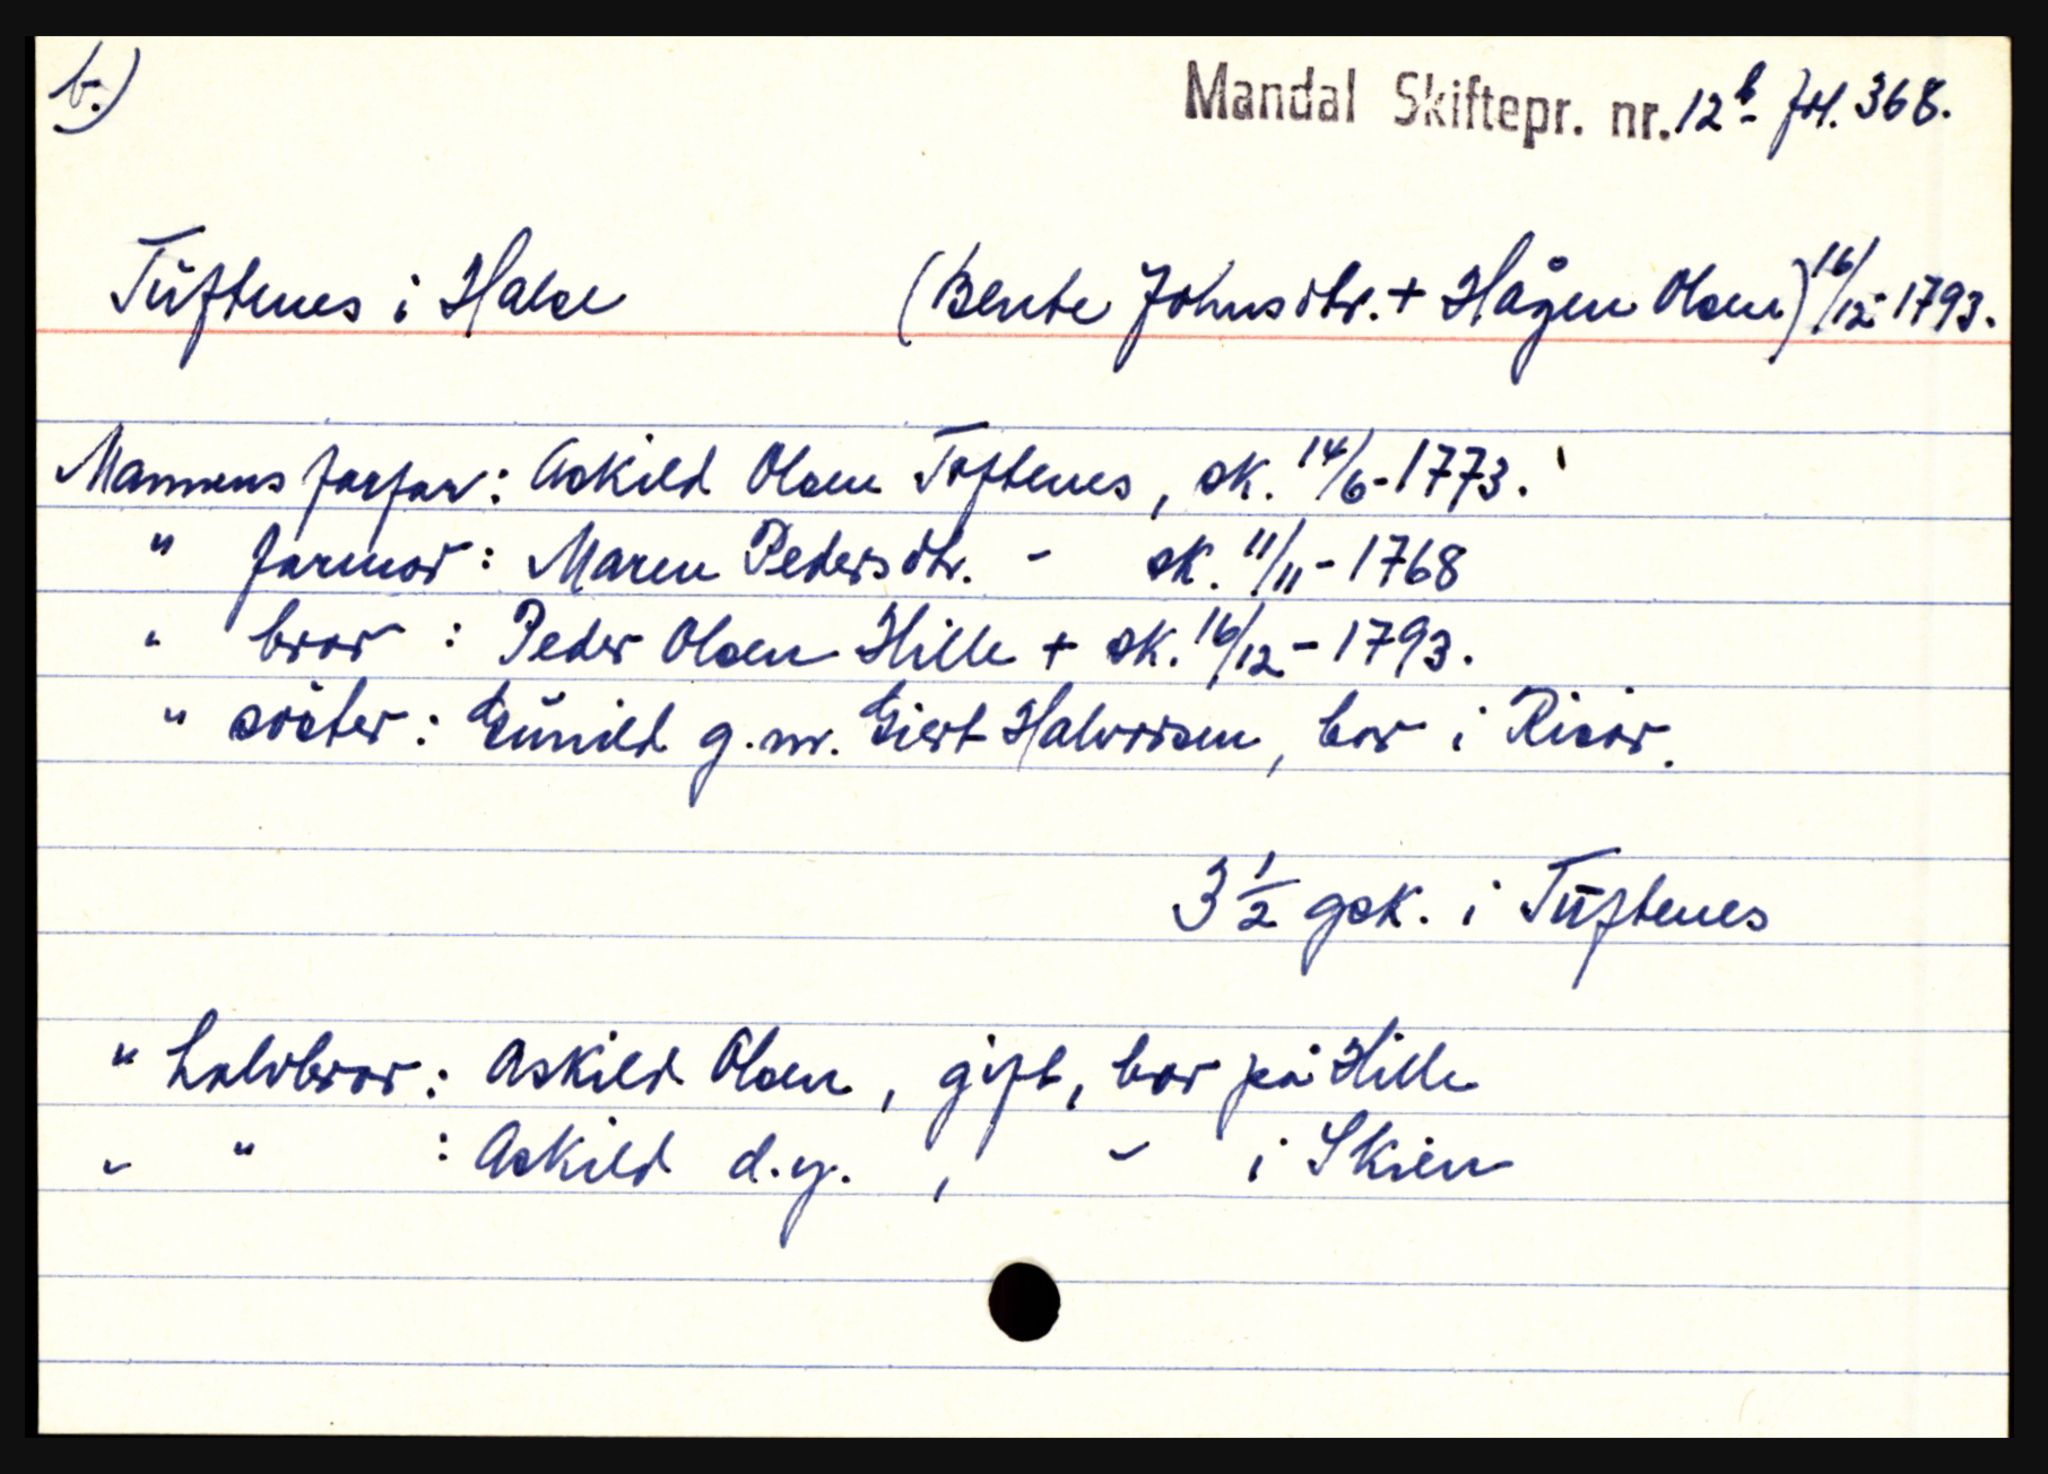 b.)
Mandal Skiftepr. nr. 12b- fol. 368.
Tuftenes i Halse (Bente Johnsdtr. + Hågen Olsen) 16/12-1793.
Mannens farfar: Askild Olsen Toftenes, sk. 14/6-1773.
" farmor: Maren Pedersdtr. - sk. 11/11-1768
" bror : Peder Olsen Hille + sk. 16/12-1793.
" söster: Gunild g.m. Giert Halvorsen, bor i Risör.
3 1/2 gsk. i Tuftenes
" halvbror: Askild Olsen, gift, bor på Hille
" " : Askild d.y. , - i Skien